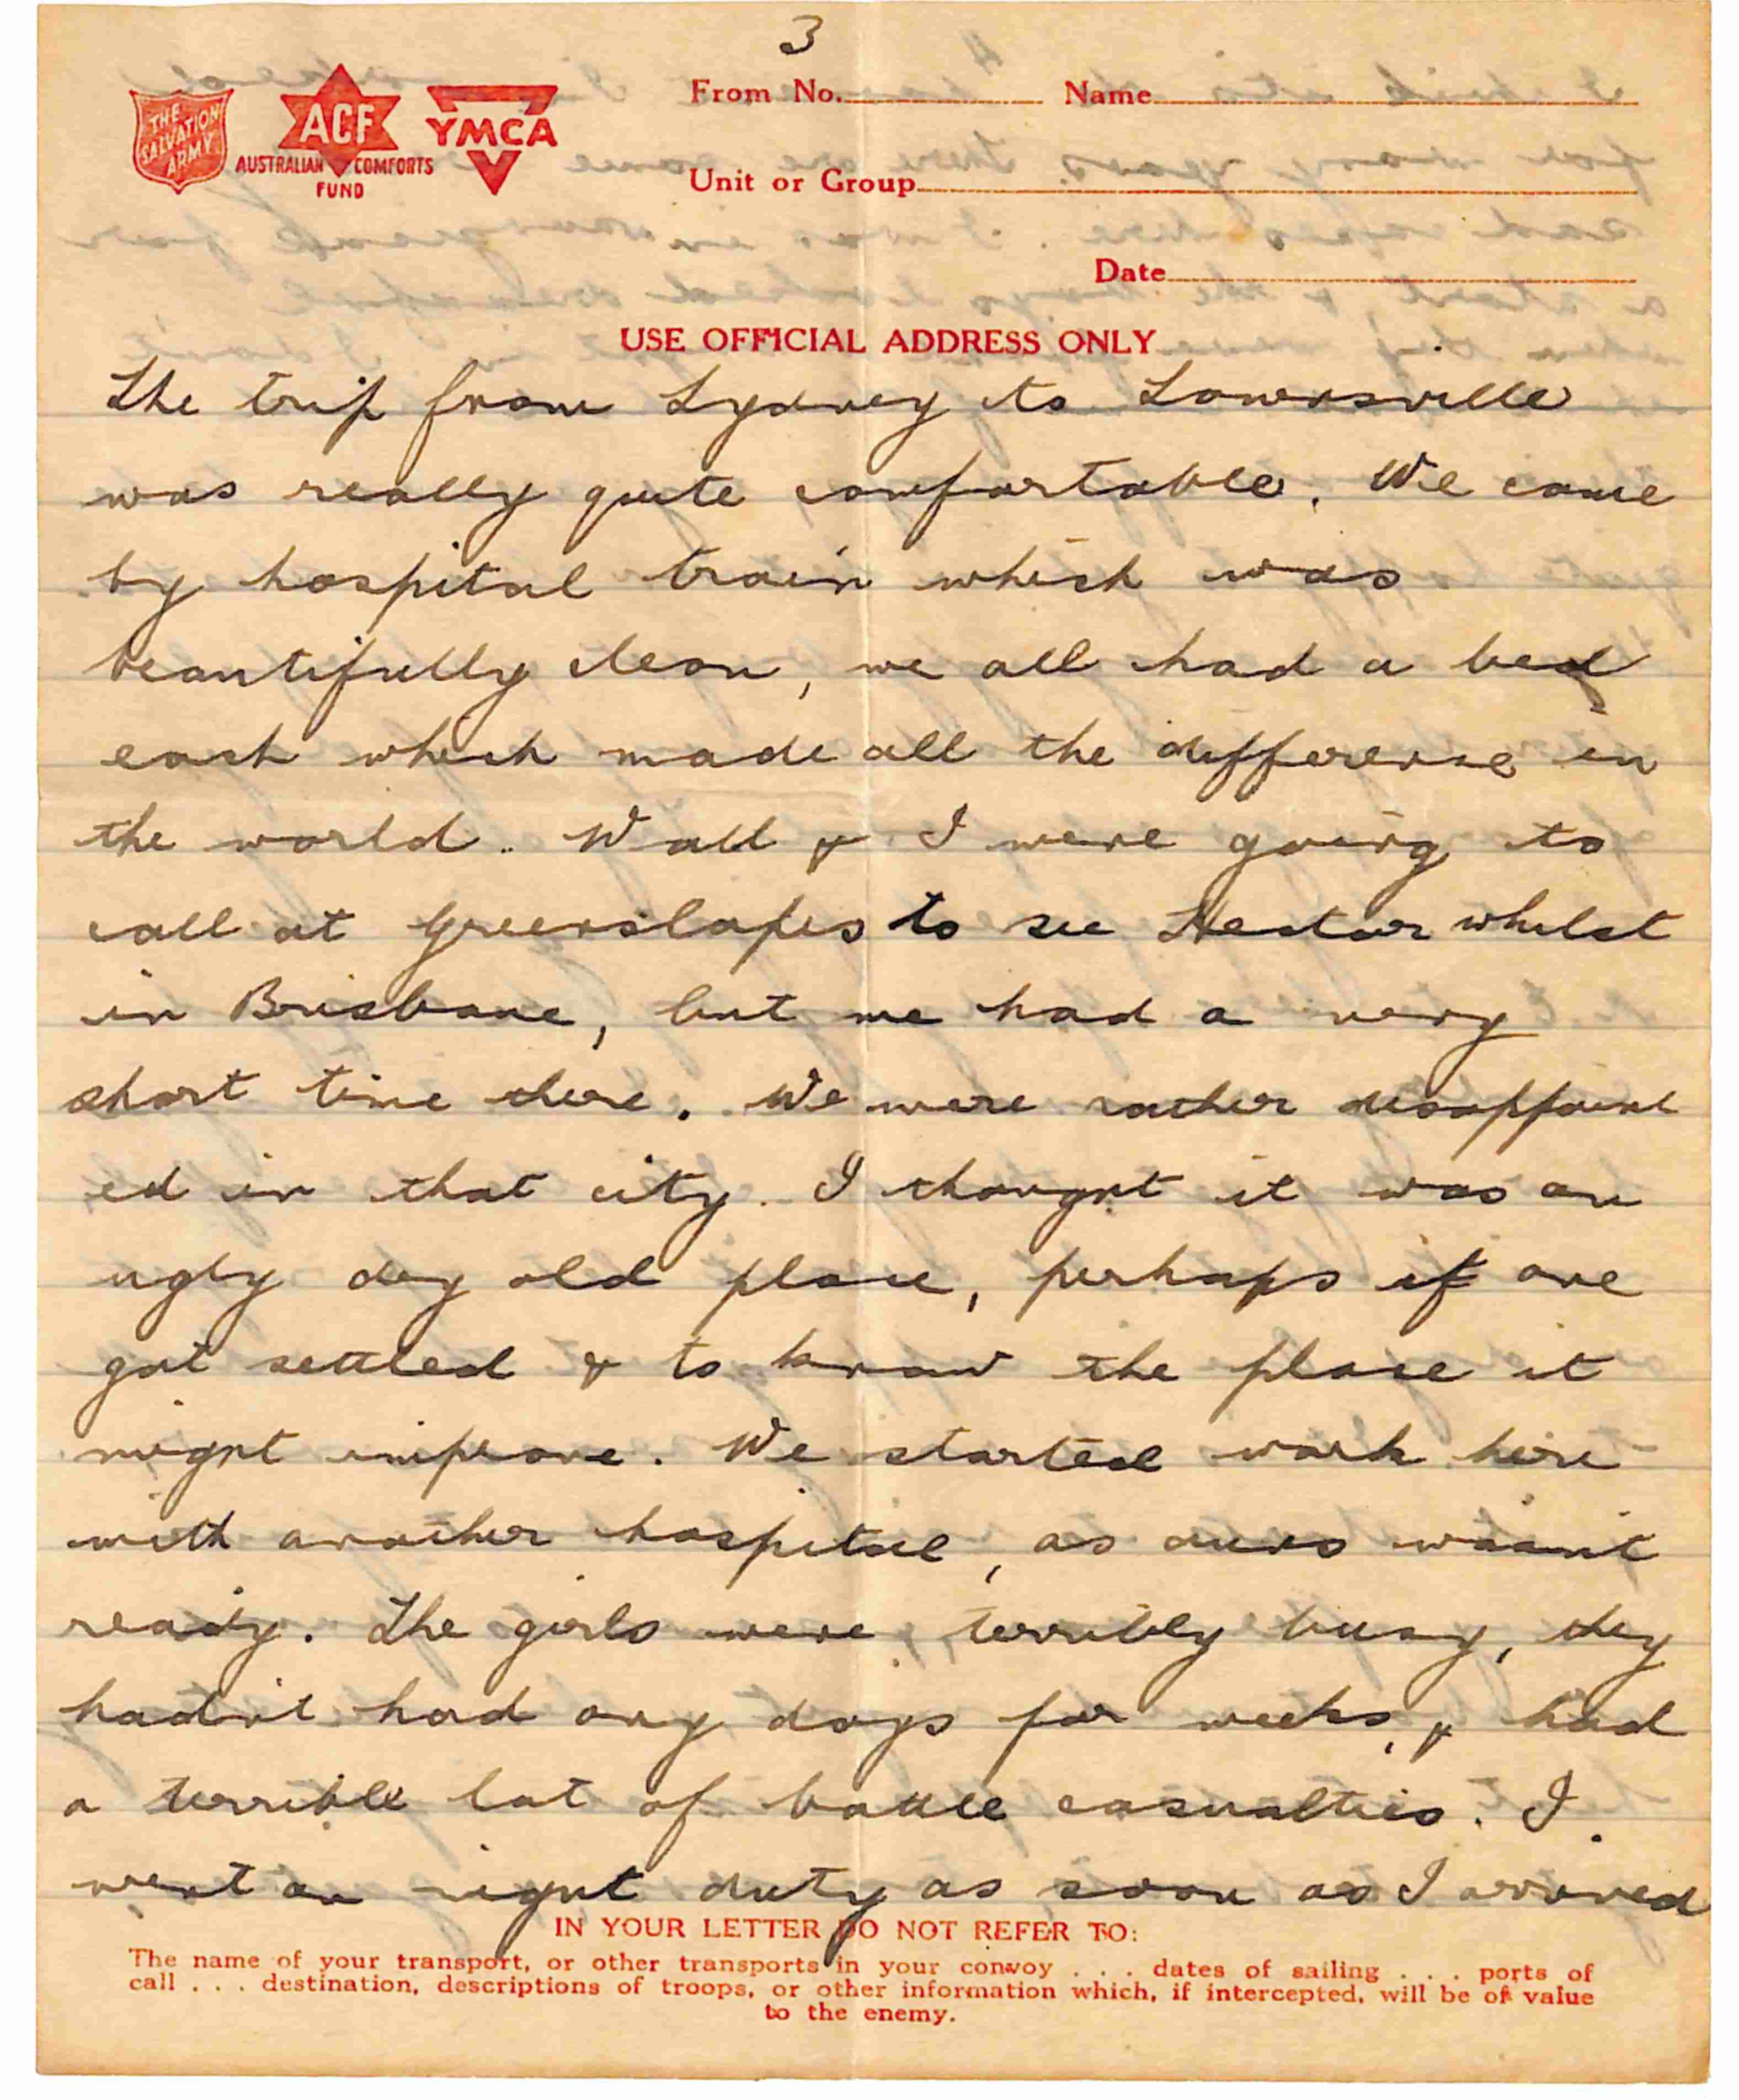 3
THE
SALVATION
ARMY
ACF
AUSTRALIAN COMFORTS
FUND
YMCA
From No. Name
Unit or Group
Date
USE OFFICIAL ADDRESS ONLY
The trip from Sydney to Townsville
was really quite comfortable. We came
by hospital train which was
beautifully clean, we all had a bed
each which made all the difference in
the world. Wall & I were going to
call at Greenslopes to see Hector whilst
in Brisbane, but we had a very
short time there. We were rather disappoint
ed in that city. I thought it was an
ugly old place, perhaps if one
got settled & to know the place it
might improve. We started work here
with another hospital, as ours wasn't
ready. The girls were terribly busy, they
hadn't had any days for weeks, & had
a terrible lot of battle casualties. I
went on night duty as soon as I arrived
IN YOUR LETTER DO NOT REFER TO:
The name of your transport, or other transports in your convoy . . . dates of sailing . . . ports of
call . . . destination, descriptions of troops, or other information which, if intercepted, will be of value
to the enemy.